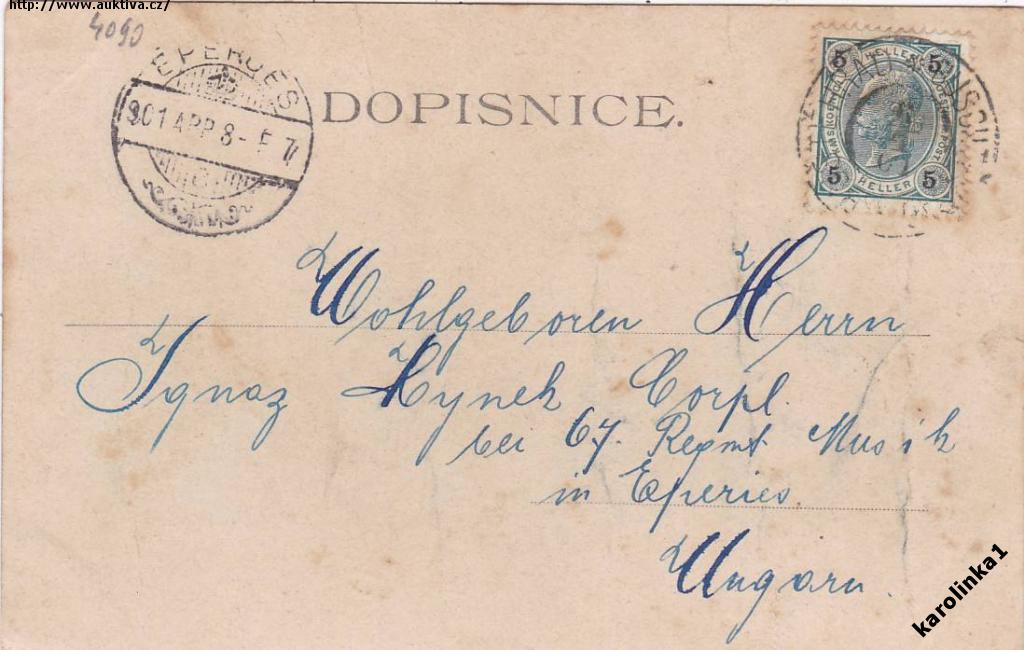 http://www.auktiva.cz/
4090
EPERJES
901 APR 8-
DOPISNICE.
5 HELLER 5
5 HELLER 5
Wohlgeboren Herrn
Ignaz Hynek Corpl.
bei 67. Regmt Musik
in Eperies.
Ungarn.
karolinka1